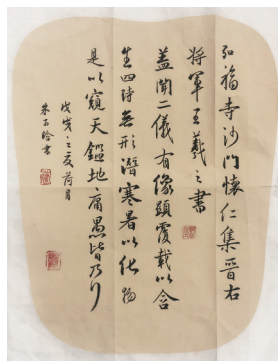 弘福寺沙門懷仁集晉右
將軍王羲之書
蓋聞二儀有像顯覆載以含
生四時無形潛寒暑以化物
是以窺天鑑地庸愚皆乃
戊戌之夏荷月
朱
書